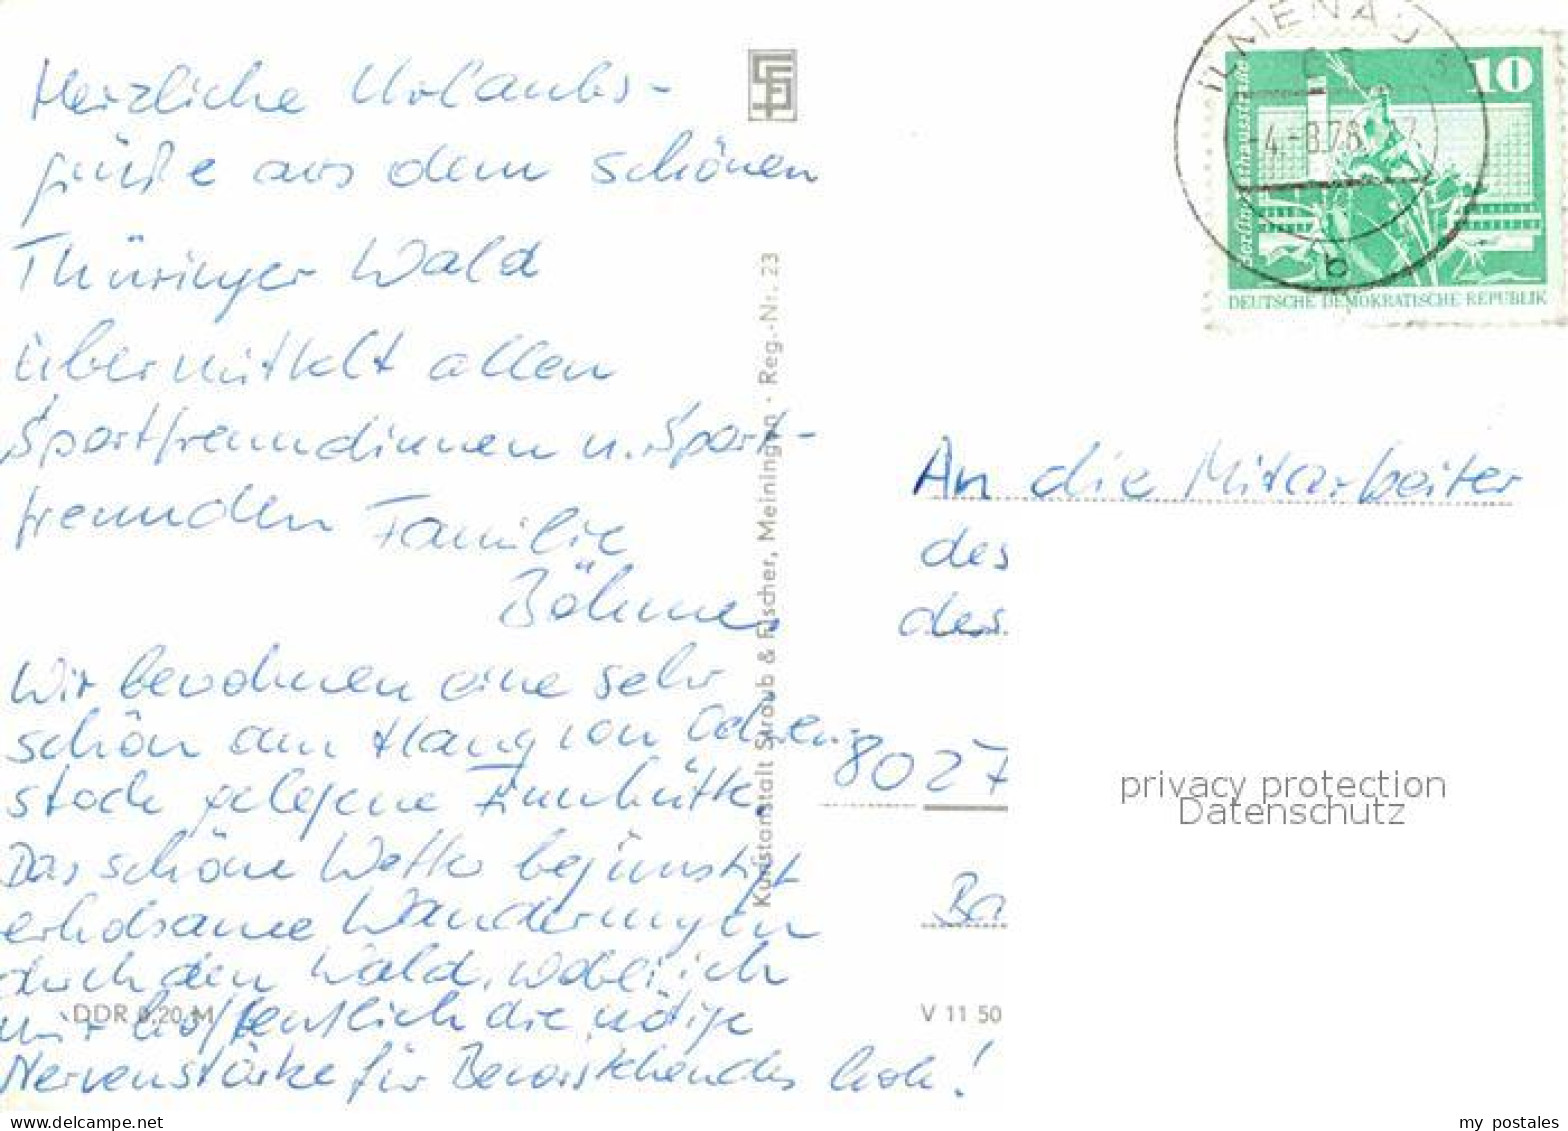 Herzliche Urlaubs-
grüße aus dem schönen
Thüringer Wald
übermittelt allen
Sportfreundinnen u. Sport-
freunden Familie
Böhme,
Wir bewohnen eine sehr
schön am Hang von Oehren-
stock gelegene Finnhütte.
Das schöne Wetter begünstigt
erholsame Wanderungen
durch den Wald, wobei ich
mir hoffentlich die nötige
Nervenstärke für Bevorstehendes hole!
DDR 0,20 M
Kunstanstalt Straub & Fischer, Meiningen · Reg.-Nr. 23
V 11 50
ILMENAU
-4.-8.78
b
10
Berlin, Rathausstraße
DEUTSCHE DEMOKRATISCHE REPUBLIK
An die Mitarbeiter
des
des
8027
Ba
privacy protection
Datenschutz
my postales